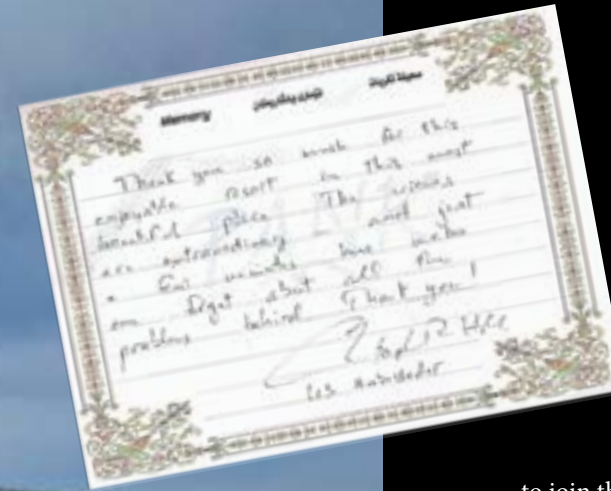 Memory
Thank you so much for this
enjoyable resort in this most
beautiful place. The views
are extraordinary and just
a few minutes
one forget about all the
problems behind Thank you!
Hill
U.S. Ambassador
to join th